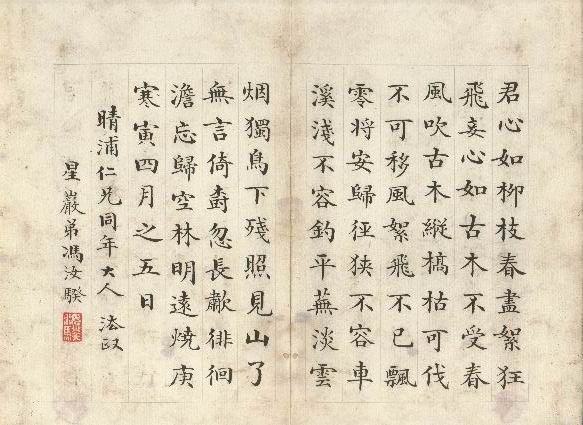 君心如柳枝春盡絮狂
飛妾心如古木不受春
風吹古木縱槁枯可伐
不可移風絮飛不已飄
零将安歸徑狹不容車
溪淺不容釣平蕪淡雲
烟獨鳥下殘照見山了
無言倚樹忽長歗徘徊
澹忘歸空林明遠燒庚
寒寅四月之五日
晴浦仁兄同年大人 法政
星巖弟馮汝騤